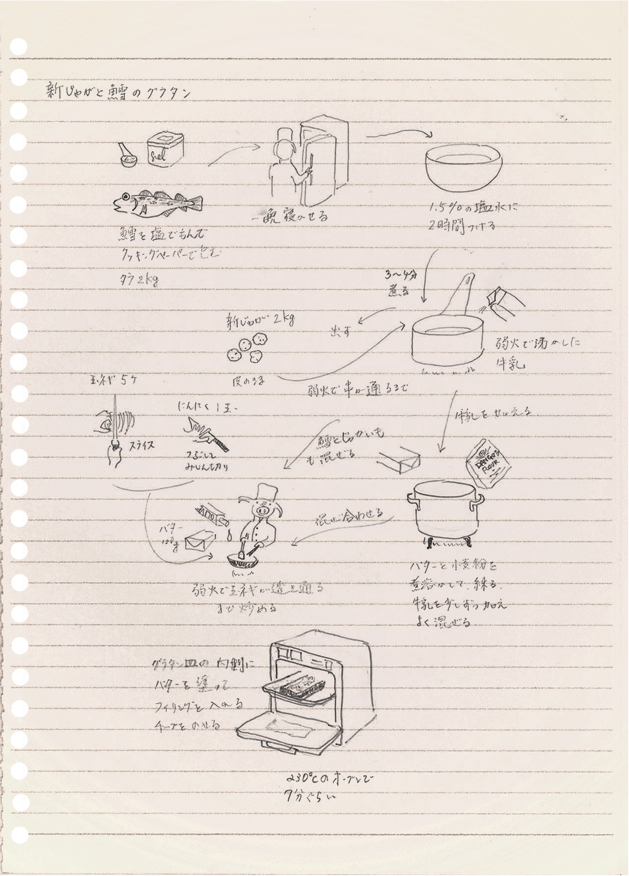 新じゃがと鱈のグラタン
sel
鱈を塩でもんで
クッキングペーパーで包む
タラ2kg
一晩寝かせる
1.5%の塩水に
2時間つける
3〜4分
煮る
出す
弱火で沸かした
牛乳
新じゃが 2kg
皮のまま
弱火で串が通るまで
玉ネギ5ケ
スライス
にんにく1玉
つぶして
みじん切り
鱈とじゃがいも
も混ぜる
牛乳をせんえる
FLOUR
バター
混ぜ合わせる
弱火で玉ネギが透き通る
まで炒める
バターと小麦粉を
煮溶かして、練る。
牛乳を少しずつ加え
よく混ぜる
グラタン皿の内側に
バターを塗って
フィリングを入れる
チーズをのせる
230℃のオーブンで
7分ぐらい